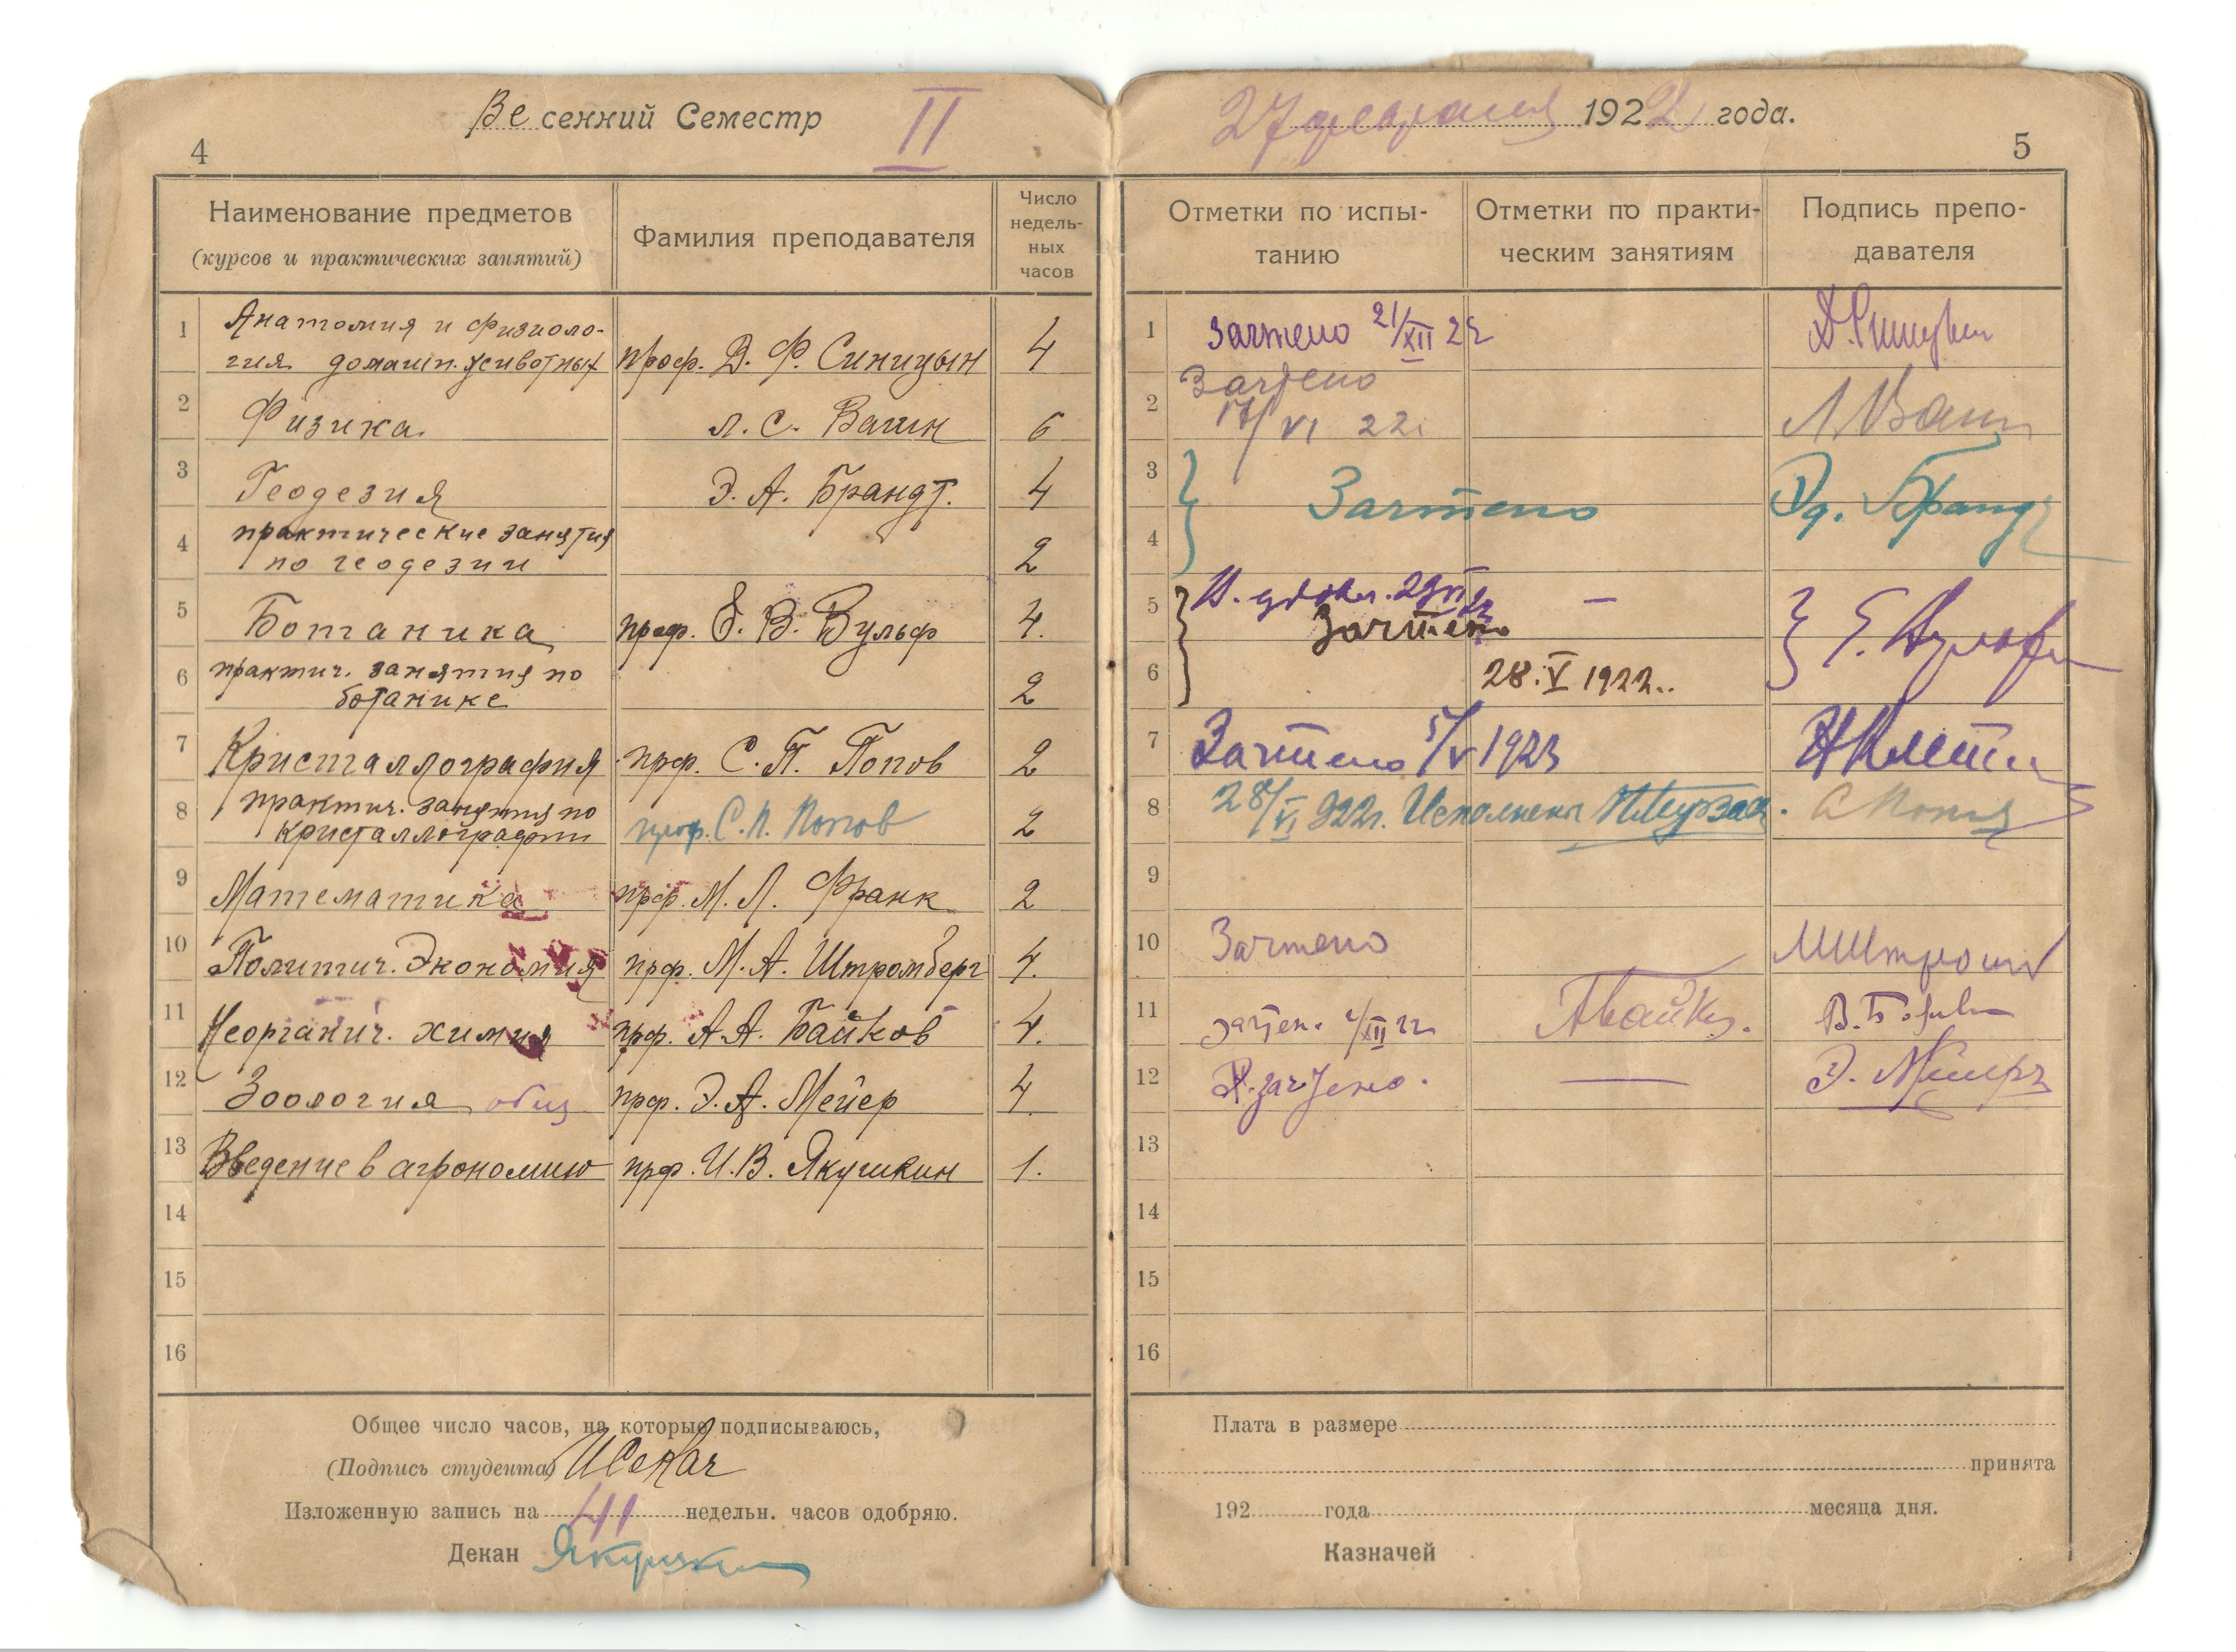 Весенний Семестр II
4
Наименование предметов
(курсов и практических занятий)
Фамилия преподавателя
Число
недель-
ных
часов
1 Анатомия и физиоло-
гия домашн. животных проф. Д. Ф. Синицын 4
2 Физика Л. С. Вагин 6
3 Геодезия Э. А. Брандт. 4
4 практические занятия
по геодезии 2
5 Ботаника проф. Е. В. Вульф 4.
6 практич. занятия по
ботанике 2
7 Кристаллография прф. С. П. Попов 2
8 практич. занятия по
кристаллографии проф. С. П. Попов 2
9 Математика прф. М. Л. Франк 2
10 Политич. Экономия прф. М. А. Штромберг 4.
11 Неорганич. химия прф. А. А. Байков 4.
12 Зоология общ прф. Э. А. Мейер 4.
13 Введение в агрономию прф. И. В. Якушкин 1.
14
15
16
Общее число часов, на которые подписываюсь,
(Подпись студента)
Изложенную запись на 41 недельн. часов одобряю.
Декан Якушкин
27 февраля 1922 года.
5
Отметки по испы-
танию
Отметки по практи-
ческим занятиям
Подпись препо-
давателя
1 Зачтено 21/XII 22 Д. Синицын
2 Зачтено
17/VI 22 Л Вагин
3 Зачтено Эд. Брандт
4
5 В. удовл. 29 VI 22 — Е. Вульф
Зачтено
6 28. V 1922..
7 Зачтено 5/V 1923
8 28/VI 922г. Исполнены С Попов
9
10 Зачтено МШтром
11 зачтен. XII 22 АБайков.
12 В. зачтено. — Э. Мейеръ
13
14
15
16
Плата в размере
принята
192 года месяца дня.
Казначей